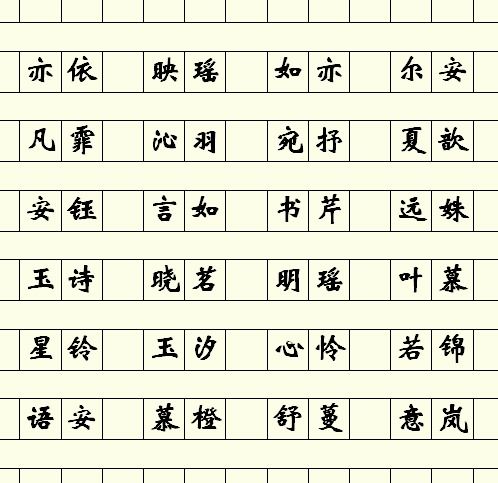 亦依 映瑶 如亦 尔安
凡霏 沁羽 宛抒 夏歆
安钰 言如 书芹 远姝
玉诗 晓茗 明瑶 叶慕
星铃 玉汐 心怜 若锦
语安 慕橙 舒蔓 意岚